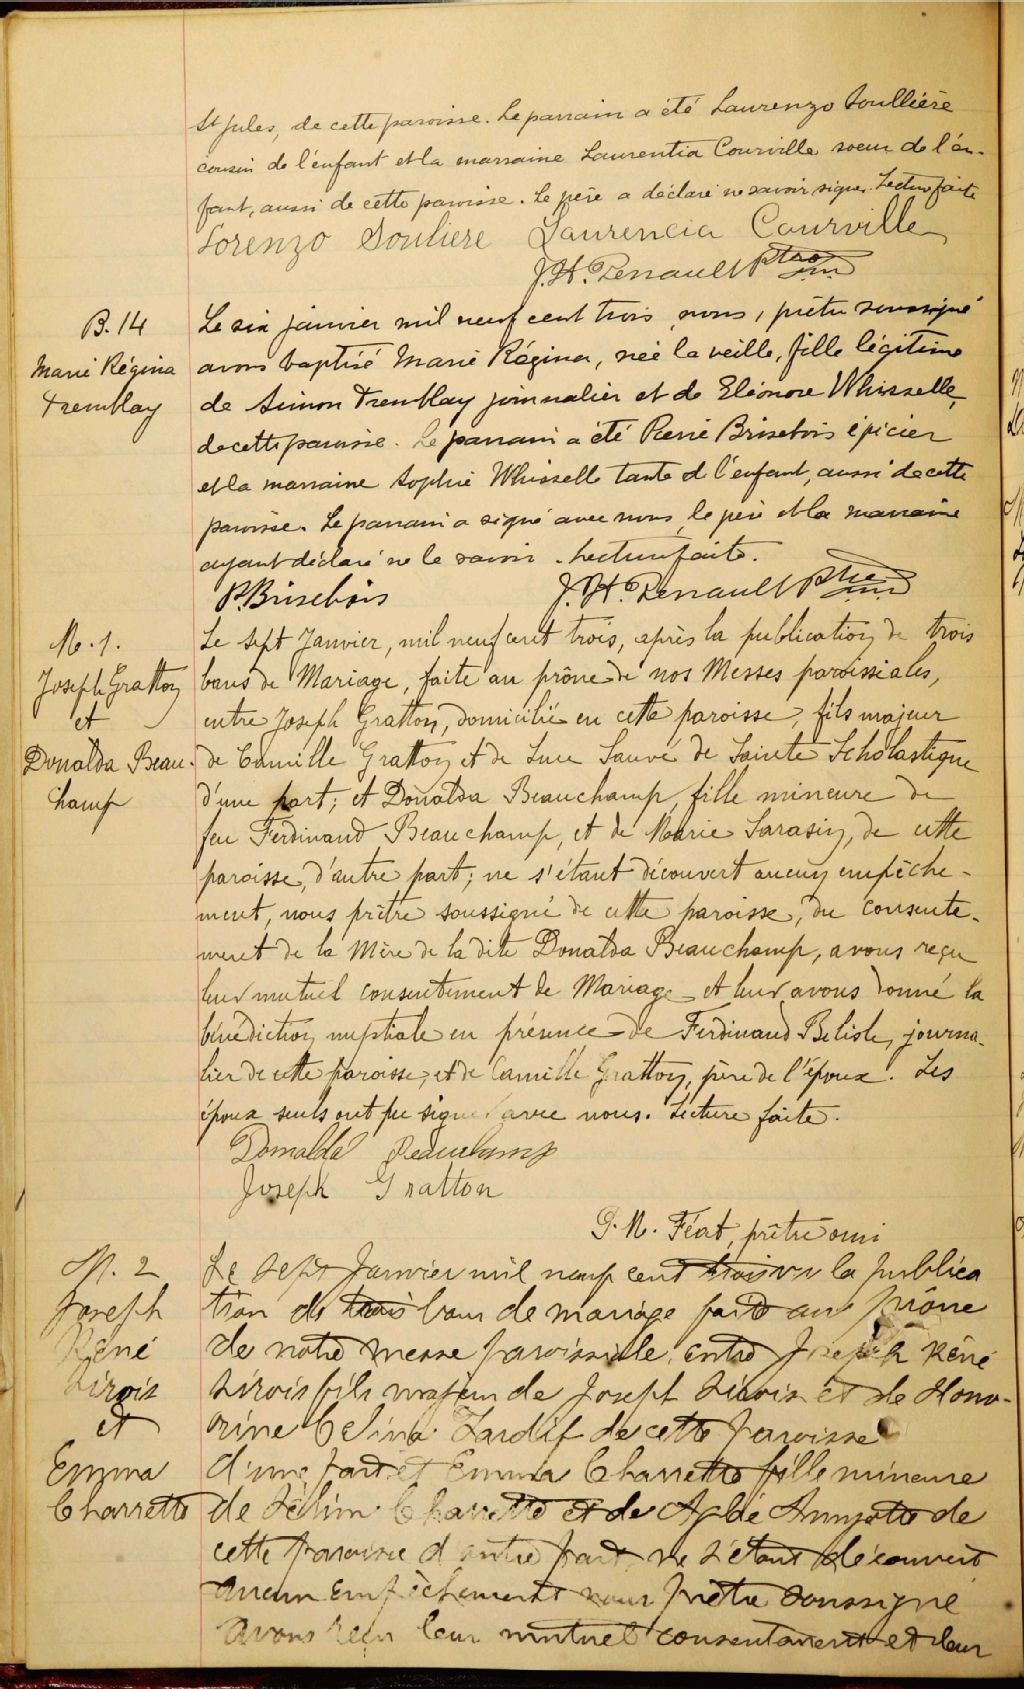 St Jules, de cette paroisse. Le parrain a été Laurenzo Soullière
cousin de l'enfant et la marraine Laurentia Courville soeur de l'en-
fant, aussi de cette paroisse. Le père a déclaré ne savoir signer. Lecture faite
Lorenzo Souliere Laurencia Courville
J. H. Renault Ptre
B. 14
Marie Régina
Tremblay
Le six janvier mil neuf cent trois nous, prêtre soussigné
avons baptisé Marie Régina, née la veille, fille légitime
de Simon Tremblay journalier et de Eléonore Whisselle,
de cette paroisse. Le parrain a été René Brisebois épicier
et la marraine Sophie Whisselle tante de l'enfant, aussi de cette
paroisse. Le parrain a signé avec nous, le père et la marraine
ayant déclaré ne le savoir. Lecture faite.
R. Brisebois J. H. Renault Ptre
M. 1.
Joseph Gratton
et
Donalda Beau-
champ
Le sept Janvier, mil neuf cent trois, après la publication de trois
bans de Mariage, faite au prône de nos Messes paroissiales,
entre Joseph Gratton, domicilié en cette paroisse, fils majeur
de Camille Gratton et de Luce Sauvé de Sainte Scholastique
d'une part; et Donalda Beauchamp, fille mineure de
feu Ferdinand Beauchamp, et de Marie Sarasin, de cette
paroisse, d'autre part; ne s'étant découvert aucun empêche-
ment, nous prêtre soussigné de cette paroisse, du consente-
ment de la Mère de la dite Donalda Beauchamp, avons reçu
leur mutuel consentement de Mariage et leur avons donné la
bénédiction nuptiale en présence de Ferdinand Belisle, journa-
lier de cette paroisse, et de Camille Gratton, père de l'époux. Les
époux seuls ont pu signer avec nous. Lecture faite.
Donalda Beauchamp
Joseph Gratton
G. M. Féat, prêtre omi
M. 2
Joseph
René
Sirois
et
Emma
Charrette
Le Sept Janvier mil neuf cent trois vu la publica
tion de trois bans de mariage faite au prône
de notre messe paroissiale, entre Joseph René
Sirois fils majeur de Joseph Sirois et de Hono-
rine Celina Tardif de cette paroisse
d'une part et Emma Charrette fille mineure
de Sélim Charrette et de Aglaé Amyotte de
cette paroisse d'autre part, ne s'étant découvert
aucun empêchement nous prêtre soussigné
avons reçu leur mutuel consentement et leur